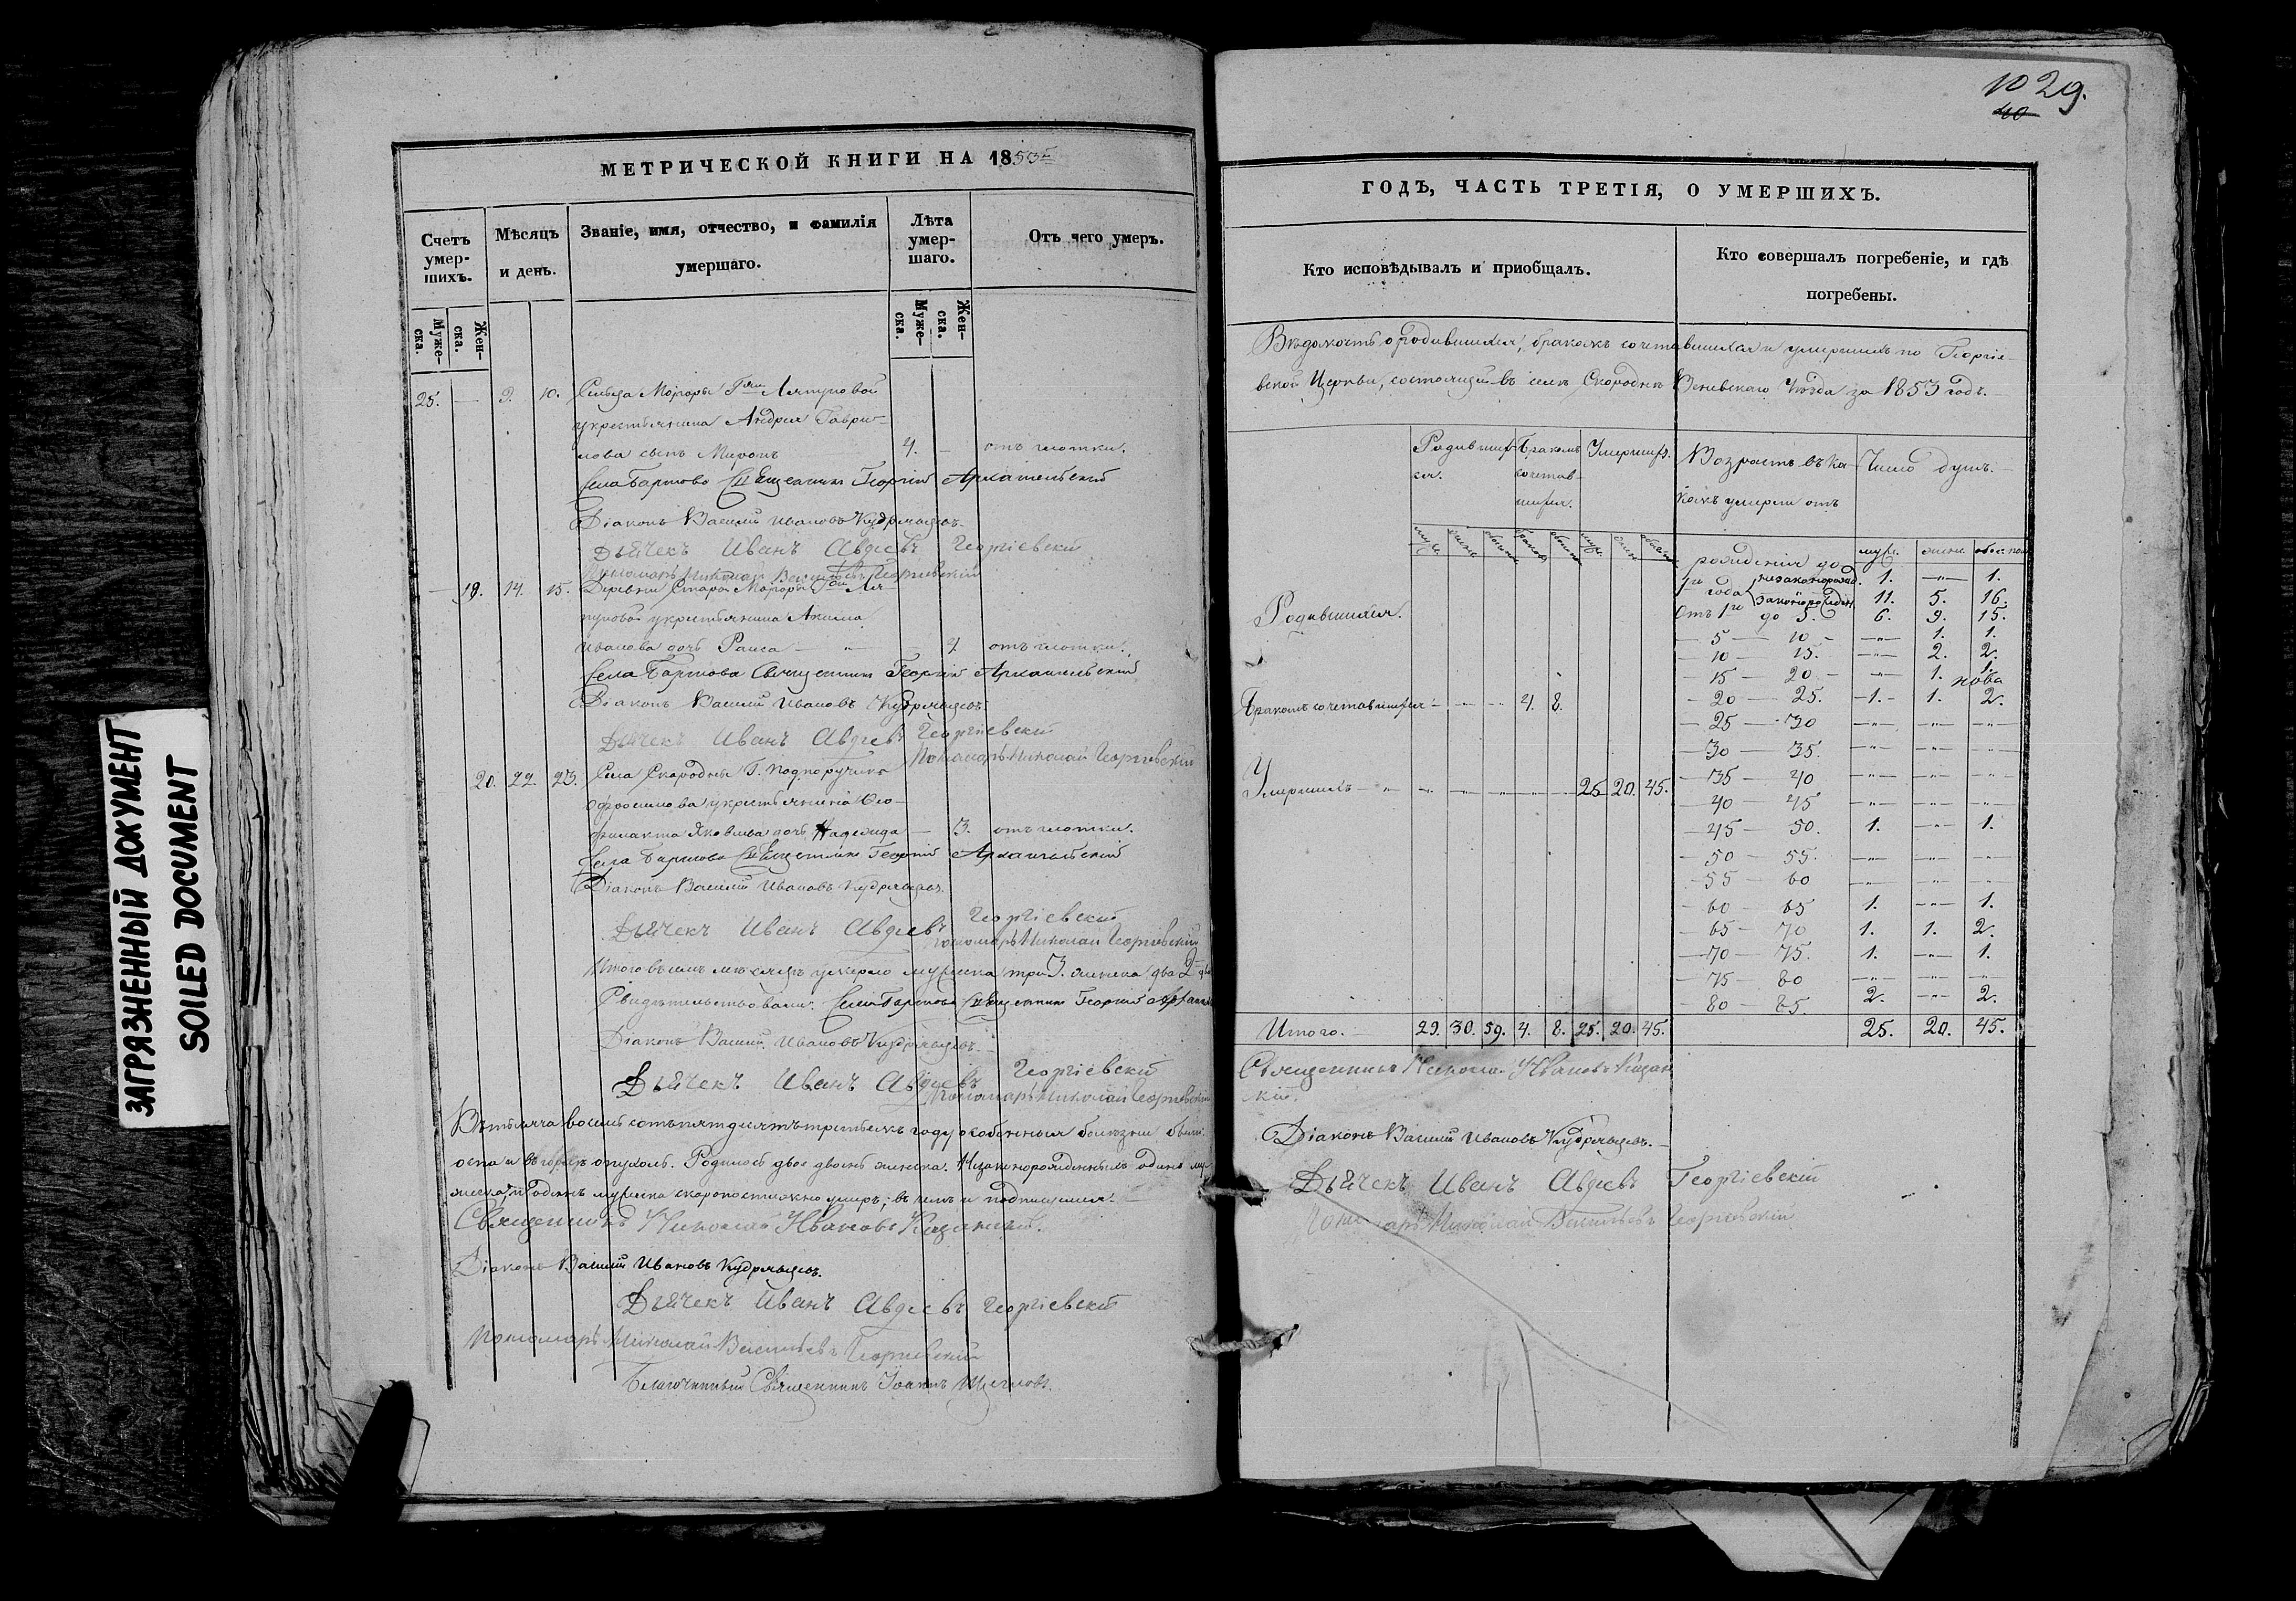 ЗАГРЯЗНЕННЫЙ ДОКУМЕНТ
SOILED DOCUMENT
МЕТРИЧЕСКОЙ КНИГИ НА 1853й
Счетъ умер-шихъ.
Мѣсяцъ и день.
Званіе, имя, отчество, и фамилія умершаго.
Лѣта умер-шаго.
Отъ чего умеръ.
Муже-ска.
Жен-ска.
Муже-ска.
Жен-ска.
25. — 9. 10. Сельца Мороры Г жи Ляпуновой
крестьянина Андрея Гаври-
лова сынъ Миронъ 4. — отъ глотки.
Села Бартово Священникъ Георгій Архангельскій
Діаконъ Василій Ивановъ Кудрявцевъ.
Дьячекъ Иванъ Авдіевъ Георгіевскій
Пономарь Николай Васильевъ Георгіевскій
— 19. 14. 15. Деревни Старой Мороры Г жи Ля-
пуновой крестьянина
Иванова дочь Раиса — отъ глотки.
Села Бартова Священникъ Георгій Архангельскій
Діаконъ Василій Ивановъ Кудрявцевъ.
Дьячекъ Иванъ Авдіевъ Георгіевскій
Пономарь Николай Георгіевскій
20. 22. 23. Села Скородны Г. Подпоручика
крестьянина Фео-
филакта Яковлева дочь Надежда — 3. отъ глотки.
Села Бартова Священникъ Георгій Архангельскій
Діаконъ Василій Ивановъ Кудрявцевъ.
Дьячекъ Иванъ Авдіевъ Георгіевскій
Пономарь Николай Георгіевскій
Итого въ семъ мѣсяцѣ умерло мужеска три 3. женска два 2
Свидѣтельствовали: Села Бартова Священникъ Георгій
Діаконъ Василій Ивановъ Кудрявцевъ.
Дьячекъ Иванъ Авдіевъ Георгіевскій
Пономарь Николай Георгіевскій
Въ тысяча восемь сотъ пятдесятъ третьемъ году особенныя болѣзни были:
оспа и въ горлѣ опухоль. Родилось двое двоенъ женска. Незаконорожденныхъ одинъ
женска, и одинъ мужеска скоропостижно умеръ; въ чемъ и подписуемся.
Священникъ Николай Ивановъ Казанскій.
Діаконъ Василій Ивановъ Кудрявцевъ.
Дьячекъ Иванъ Авдіевъ Георгіевскій
Пономарь Николай Васильевъ Георгіевскій
Благочинный Священникъ Іоаннъ Щегловъ.
1029.
40
ГОДЪ, ЧАСТЬ ТРЕТІЯ, О УМЕРШИХЪ.
Кто исповѣдывалъ и пріобщалъ.
Кто совершалъ погребеніе, и гдѣ погребены.
Вѣдомость о родившихся, бракомъ сочетавшихся и умершихъ по Георгіе-
вской Церкви, состоящей въ селѣ Скородномъ Веневскаго Уѣзда за 1853 годъ.
Родивших-ся.
Бракомъ сочетав-шихся.
Умерших.
Возрастъ въ ка-
комъ умерли отъ
Число душъ.
муж. женс. обоего браков. обоего муж. женс. обоего
рожденія до муж. женс. обоег. пола
1го года незаконорожд. 1. —"— 1.
законорожден. 11. 5. 16.
Отъ 1го до 5. 6. 9. 15.
Родившихся.
— 5 — 10 — —"— 1. 1.
— 10 — 15. —"— 2. 2.
— 15 — 20. — —"— 1. 1.
Бракомъ сочетавшихся — 4. 8.
— 20 — 25. 1. 1. 2.
— 25 — 30 —"— —"— —"—
— 30 — 35. —"— —"— —"—
Умершихъ 25. 20. 45.
— 35 — 40 —"— —"— —"—
— 40 — 45 —"— —"— —"—
— 45 — 50. 1. —"— 1.
— 50 — 55. —"— —"— —"—
— 55 — 60 —"— —"— —"—
— 60 — 65 1. —"— 1.
— 65 — 70 1. 1. 2.
— 70 — 75. 1. —"— 1.
— 75 — 80 —"— —"— —"—
— 80 — 85. 2. —"— 2.
Итого. 29. 30. 59. 4. 8. 25. 20. 45. 25. 20. 45.
Священникъ Николай Ивановъ Казан-
скій.
Діаконъ Василій Ивановъ Кудрявцевъ.
Дьячекъ Иванъ Авдіевъ Георгіевскій
Пономарь Николай Васильевъ Георгіевскій